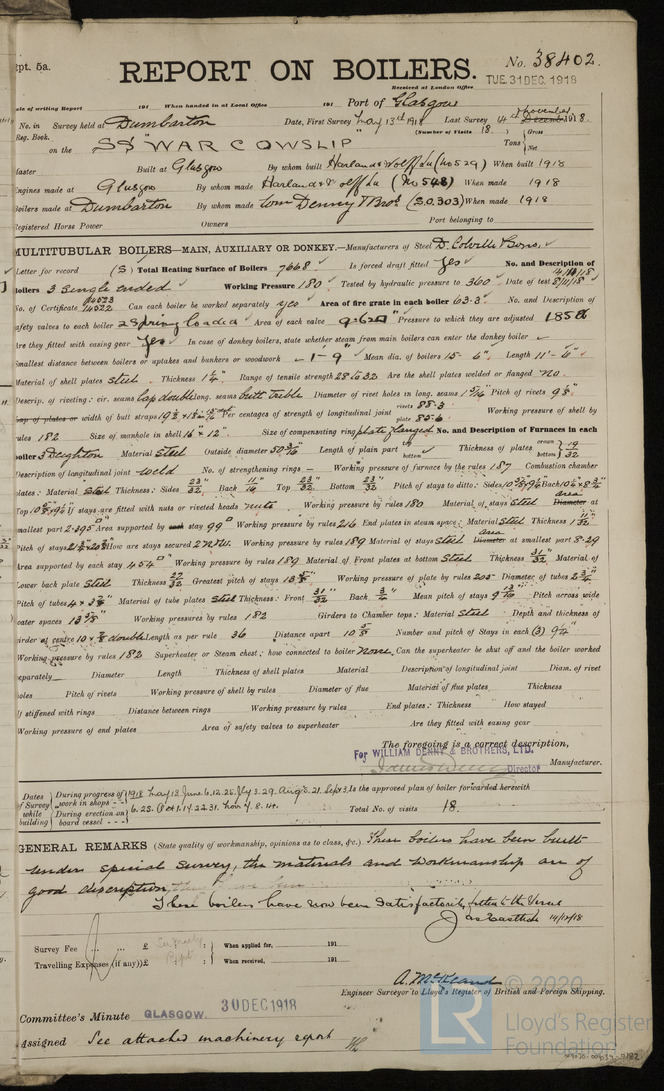 Rpt. 5a.
No. 38402.
REPORT ON BOILERS.
Received at London Office
TUE. 31 DEC. 1918
Date of writing Report 191 When handed in at Local Office 191 Port of Glasgow
No. in Survey held at Dumbarton Date, First Survey May 13th 1918 Last Survey 14th November 1918.
Reg. Book. (Number of Visits 18.)
on the SS "WAR COWSLIP" Tons { Gross Net
Master Built at Glasgow By whom built Harland & Wolff Ld (No 529) When built 1918
Engines made at Glasgow By whom made Harland & Wolff Ld (No 548) When made 1918
Boilers made at Dumbarton By whom made Wm Denny & Bros (S.O. 303) When made 1918
Registered Horse Power Owners Port belonging to
MULTITUBULAR BOILERS—MAIN, AUXILIARY OR DONKEY.—Manufacturers of Steel D. Colville & Sons.
Letter for record (S) Total Heating Surface of Boilers 7668 Is forced draft fitted Yes No. and Description of
Boilers 3 Single ended Working Pressure 180 Tested by hydraulic pressure to 360 Date of test 8/11/18
No. of Certificate 14522 14523 Can each boiler be worked separately yes Area of fire grate in each boiler 63.3 No. and Description of
safety valves to each boiler 2 Spring loaded Area of each valve 9.62 □" Pressure to which they are adjusted 185 lb
Are they fitted with easing gear Yes In case of donkey boilers, state whether steam from main boilers can enter the donkey boiler
Smallest distance between boilers or uptakes and bunkers or woodwork 1'-9" Mean dia. of boilers 15'-6" Length 11'-6"
Material of shell plates Steel Thickness 1 1/4" Range of tensile strength 28 to 32 Are the shell plates welded or flanged no.
Descrip. of riveting: cir. seams lap double long. seams butt treble Diameter of rivet holes in long. seams 1 5/16" Pitch of rivets 9 1/8"
Lap of plates or width of butt straps Per centages of strength of longitudinal joint rivets 88.3 plate 85.6 Working pressure of shell by
rules 182 Size of manhole in shell 16" x 12" Size of compensating ring plate flanged No. and Description of Furnaces in each
boiler 3 Deighton Material Steel Outside diameter 50 3/16" Length of plain part top bottom Thickness of plates crown bottom } 19/32
Description of longitudinal joint Weld No. of strengthening rings — Working pressure of furnace by the rules 187 Combustion chamber
plates: Material Steel Thickness: Sides 23/32 Back 11/16 Top 23/32 Bottom 23/32 Pitch of stays to ditto: Sides Back
Top If stays are fitted with nuts or riveted heads nuts Working pressure by rules 180 Material of stays Steel area Diameter at
smallest part 2.395 □" Area supported by each stay 99 □" Working pressure by rules 216 End plates in steam space: Material Steel Thickness 1 11/32"
Pitch of stays How are stays secured 2 N.W. Working pressure by rules 189 Material of stays Steel area Diameter at smallest part 8.29
Area supported by each stay 454 □" Working pressure by rules 189 Material of Front plates at bottom Steel Thickness 31/32" Material of
Lower back plate Steel Thickness 27/32 Greatest pitch of stays 13 5/8" Working pressure of plate by rules 205 Diameter of tubes 2 3/4"
Pitch of tubes 4 x 3 7/8" Material of tube plates Steel Thickness: Front 31/32" Back 3/4" Mean pitch of stays 9 13/16" Pitch across wide
water spaces 13 5/8" Working pressures by rules 182 Girders to Chamber tops: Material Steel Depth and thickness of
girder at centre 10 x 7/8 double Length as per rule 36 Distance apart 10 5/8 Number and pitch of Stays in each (3) 9 1/4"
Working pressure by rules 182 Superheater or Steam chest; how connected to boiler None Can the superheater be shut off and the boiler worked
separately Diameter Length Thickness of shell plates Material Description of longitudinal joint Diam. of rivet
holes Pitch of rivets Working pressure of shell by rules Diameter of flue Material of flue plates Thickness
If stiffened with rings Distance between rings Working pressure by rules End plates: Thickness How stayed
Working pressure of end plates Area of safety valves to superheater Are they fitted with easing gear
The foregoing is a correct description,
For WILLIAM DENNY & BROTHERS, LTD.
Director Manufacturer.
Dates of Survey while building { During progress of work in shops - - 1918 May 13 June 6.12.25. Jly 3.29. Aug 8.21. Sept 3. Is the approved plan of boiler forwarded herewith
During erection on board vessel - - - 6.25. Oct 1.14.22.31. Nov 7.8.14. Total No. of visits 18.
GENERAL REMARKS (State quality of workmanship, opinions as to class, &c.) These boilers have been built
under special survey, the materials and workmanship are of
good description,
These boilers have now been satisfactorily fitted in the Vessel
14/12/18
Survey Fee ... ... £ : : When applied for, 191
Travelling Expenses (if any) £ : : When received, 191
Engineer Surveyor to Lloyd's Register of British and Foreign Shipping.
Committee's Minute GLASGOW. 30 DEC 1918
Assigned See attached machinery report
© 2020
LR
Lloyd's Register
Foundation